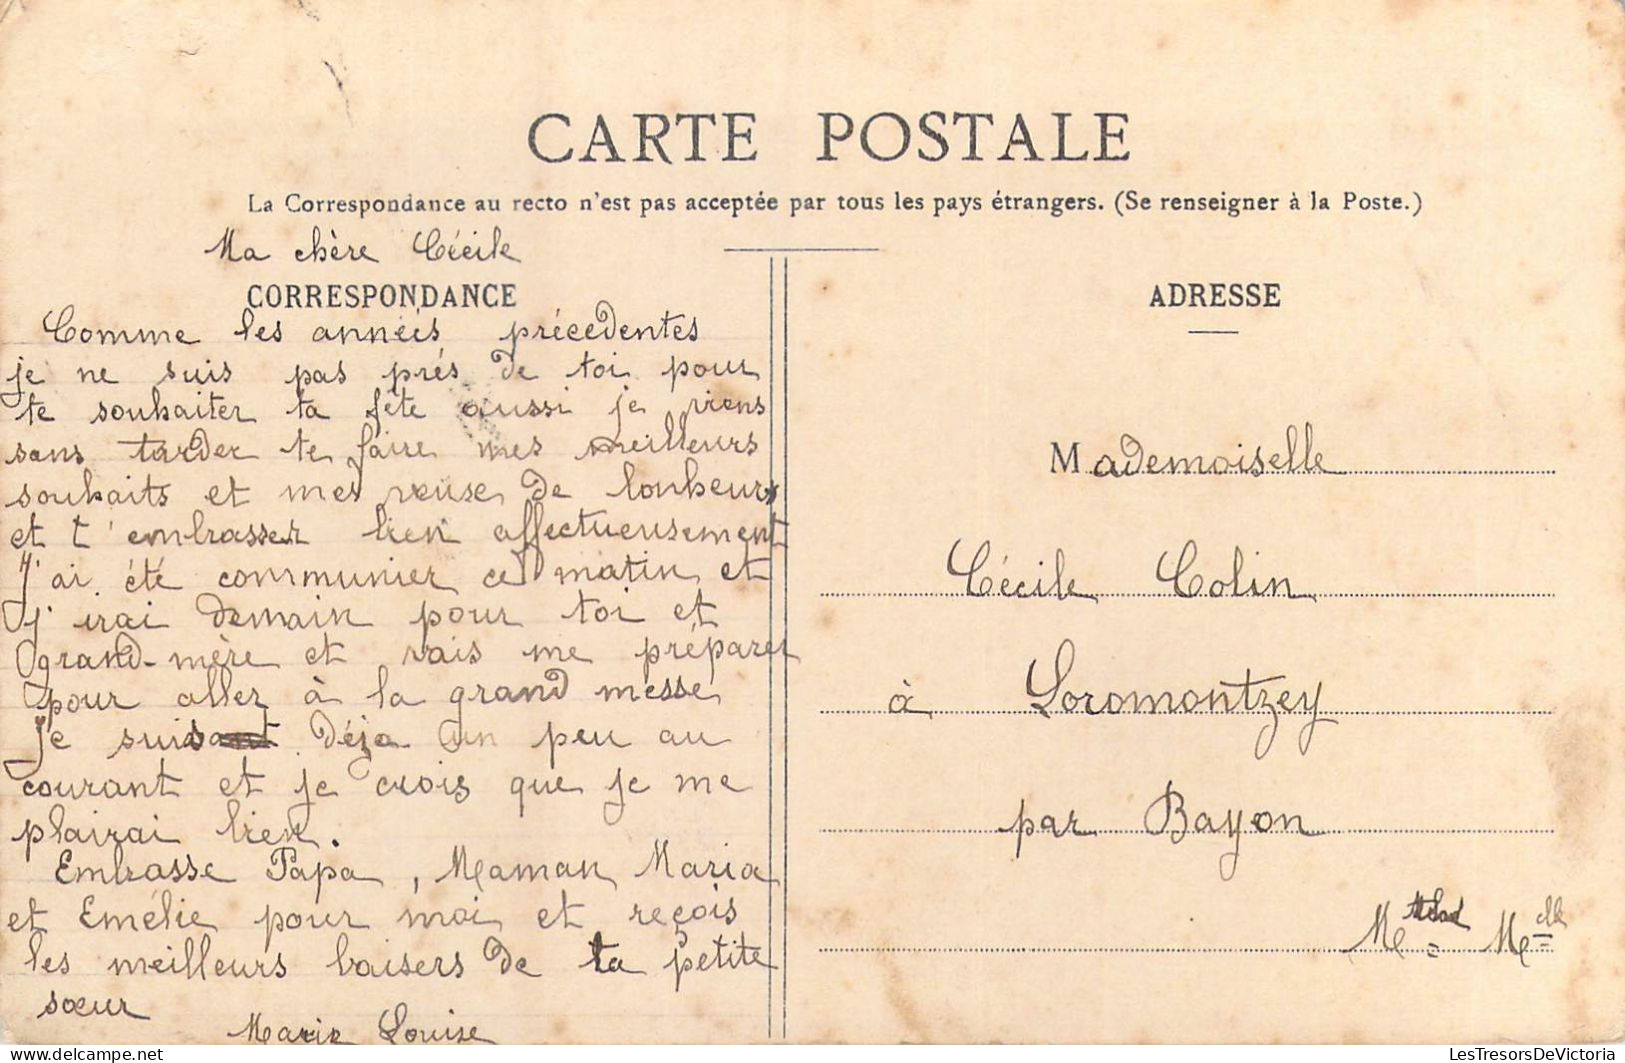 CARTE POSTALE
La Correspondance au recto n'est pas acceptée par tous les pays étrangers. (Se renseigner à la Poste.)
Ma chère Cécile
CORRESPONDANCE
Comme les années précedentes
je ne suis pas prés de toi pour
te souhaiter ta fête aussi je viens
sans tarder te faire mes meilleurs
souhaits et mes veuse de bonheur
et t'embrasser bien affectueusement
J'ai été communier ce matin et
j'irai demain pour toi et
grand-mère et vais me préparer
pour aller à la grand messe
Je suis déja un peu au
courant et je crois que je me
plairai bien.
Embrasse Papa, Maman Maria
et Emélie pour moi et reçois
les meilleurs baisers de ta petite
sœur
Marie Louise
ADRESSE
Mademoiselle
Cécile Colin
à Loromontzey
par Bayon
Mthe Melle
LesTresorsDeVictoria